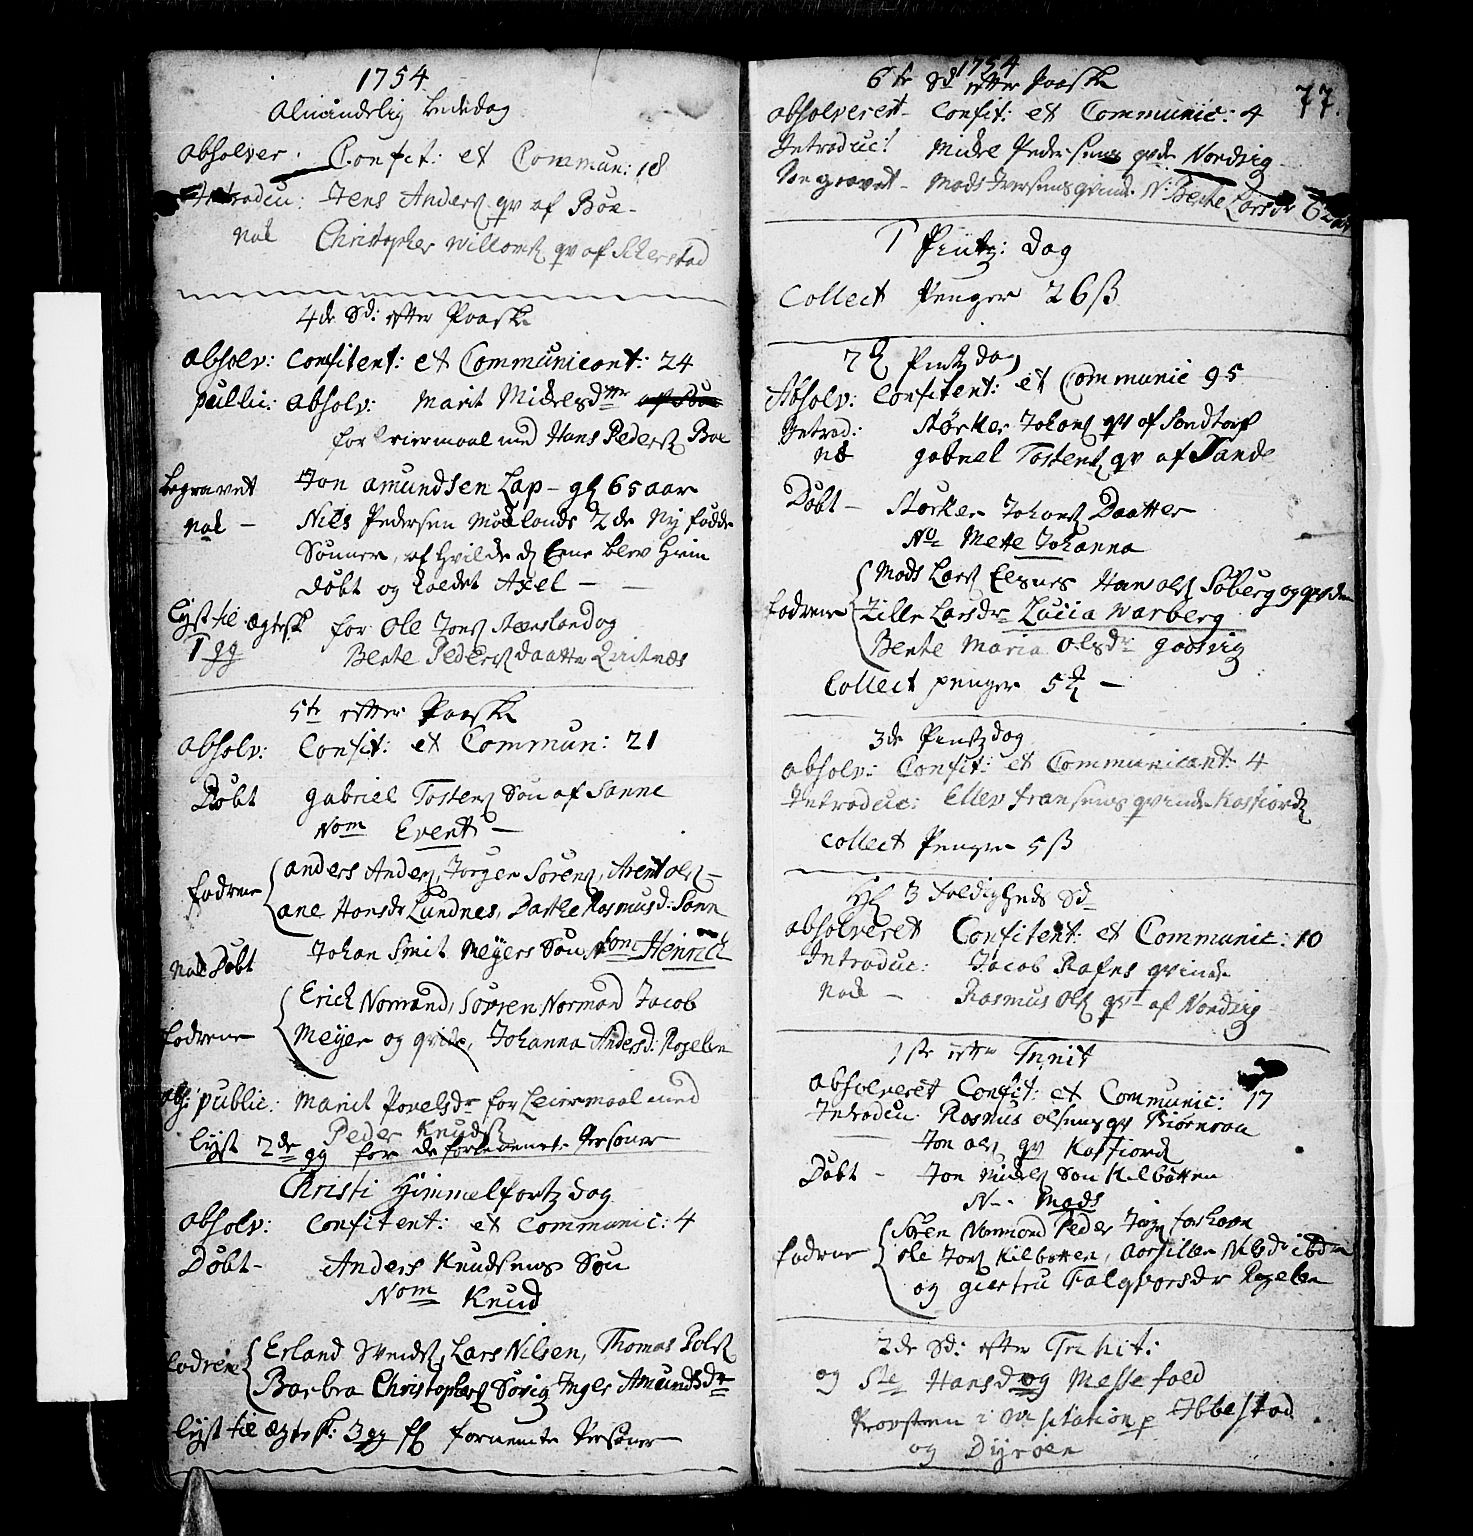 1754
Almindelig bededag
absolver. Confit: et Commun: 18
Introdu: Jens Anders qv af Boe-
nok Christopher Willoms qv af
4de Sd: efter Paaske
absolv: Confitent: et Communicant: 24
public: absolv: Marit Mickelsdtr
for Leiermaal med Hans Peders Boe
begravet Jon amundsen Lap - gl 65 aar
nok - Nils Pedersen 2de Ny fødde
Sønner, af hvilcke d Eene blev hiem
døbt og kaldet Axel -
lyst til ægtesk for Ole Jons
1 gg Berte Peders daatter
5te efter Paaske
absolv: Confit: et Commun: 21
Døbt gabriel Tostens Søn af Sanne
Nom Event -
fadrene anders Anders, Jørger Sørens, Arent ols -
ane Hansdr Lundnes, Dorthe Rasmusd: Sann
nok Døbt Johan Smit Meyers Søn Nom Henrich
fadrene Erich Normand, Søvren Normand Jacob
Meyer og qvide, Johanna Andersd:
abs: public: Marit Povelsdr for Leiermaal med
Peder Knuds
lyst 2de gg for de forbenevnte Personer
Christi Himmelfartz dag
absolv: Confitent: et Communic: 4
Døbt - Anders Knudsens Søn
Nom Knud
fadrene Erland Svends, Lars Nilsen, Thomas Pols
Barbra Christophers Sørvig Inger Amundsdr
lyst til ægtesk: 3 gg fornemte Personer
1754
6te Sd efter Paaske
77.
absolveret - Confit: et Communic: 4
Introduc: Mickel Pedersens qvde Nordvig
Begravet - Mads Iversens qvinde N: Berte Larsdr
1 Pintz: Dag
Collect Penger 26 ß
2 Pintz dag
Absolv: Confitent: et Communic 95
Introd: Størker Johans qv af Sandtorf
nok gabriel Tostens qv af Sande
Døbt - Størker Johans Daatter
No Mette Johanna
fadrene Mads Lars Elgnes Hans ols Søberg og qvinden
Zille Larsdr Lucia Warberg
Berte Maria Olsdr: gaasvig
Collect penger 5 -
3de Pintz dag
absolv: Confit: et Communicant: 4
Introduc: Ellev fransens qvinde Kasfiord
Collect Penger 5 ß
Hl 3 foldigheds Sd
absolveret Confitent: et Communic: 10
Introduc: Jacob Rafns qvinde
nok - Rasmus Ols qv af Nordvig
1ste efter Trinit
absolveret Confit: et Communic: 17
Introduc: Rasmus olsens qv Biørnraa
Jon ols qv Kasfiord
Døbt - Jon Mickels Søn Kilbotten
N - Mads
fadrene Søren Normand Peder
ole Jons Kilbotten, Nilsdr ibdm
og giertru Falqvorsdr
2de Sd: efter Trinit:
og Ste Hansdag Messefald
Provsten i Visitation p Ibbestad
og Dyrøen